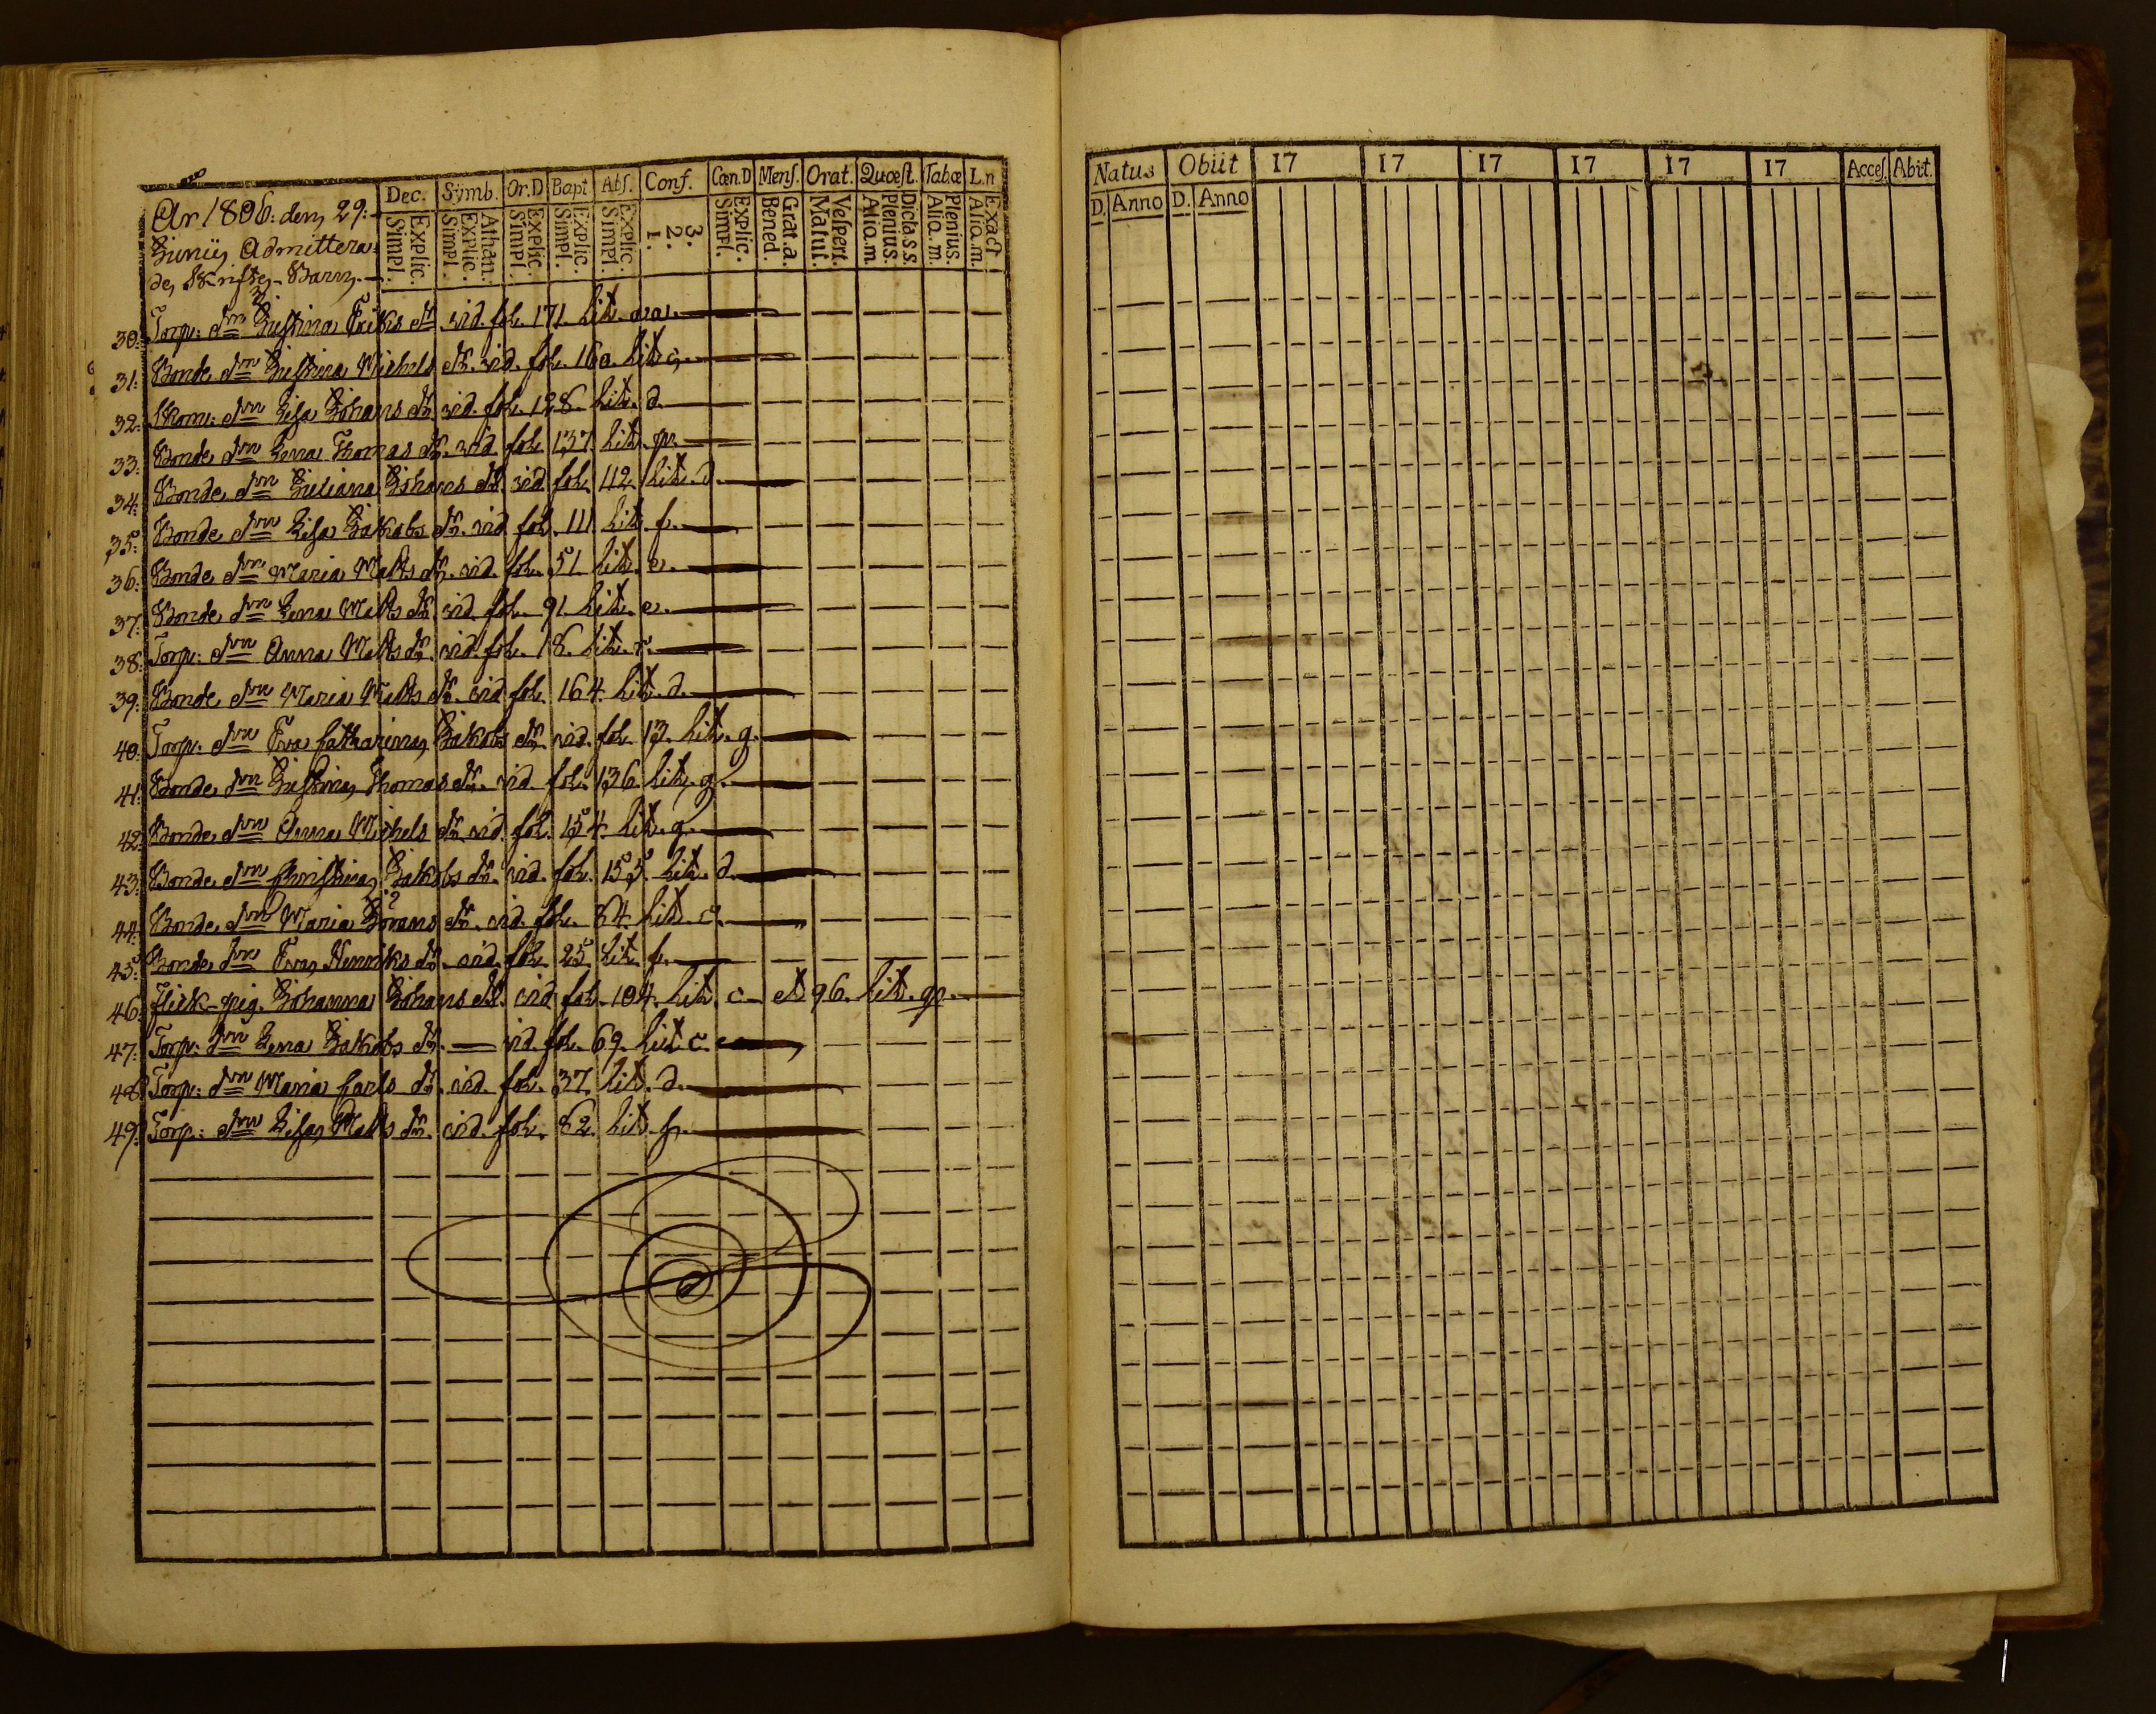 År 1806. den 29:
Junii, Admitterades
Skriftes-Barn.
Dec. Symb. Or.D Bapt Abs. Conf. Cœn.D Mens. Orat. Quæst. Tab.œ L.n
Explic. Simpl. Athan. Explic. Simpl. Explic. Simpl. Explic. Simpl. Explic. Simpl. 3. 2. 1. Explic. Simpl. Grat.a. Bened. Vespert. Matut. Dicta.s.s. Plenius. Aliq.m. Plenius. Aliq.m. Exact Aliq.m.
30: Torp: drn Justina Eriks dr. vid. fol. 171. Lit. aa.
31: Bonde drn Justina Michels dr. vid. fol. 160. Lit. c.
32: drn Lisa Johans dr. vid. fol. 128. Lit. d.
33: Bonde drn Lena Thomas dr. vid. fol. 137. Lit. p.
34: Bonde drn Juliana Johans dr. vid. fol. 112. Lit. d.
35: Bonde drn Lisa Jakobs dr. vid. fol. 111. Lit. f.
36: Bonde drn Maria Matts dr. vid. fol. 51. Lit. e.
37: Bonde drn Lena Matts dr. vid. fol. 91. Lit. e.
38: Torp: drn Anna Matts dr. vid. fol. 18. Lit. r.
39: Bonde drn Maria Matts dr. vid. fol. 164. Lit. d.
40: Torp: drn Eva Catharina Jakobs dr. vid. fol. 13. Lit. g.
41: Bonde drn Justina Thomas dr. vid. fol. 136. Lit. g.
42: Bonde drn Anna Michels dr. vid. fol. 154. Lit. g.
43: Bonde drn Christina Jakobs dr. vid. fol. 155. Lit. d.
44: Bonde drn Maria Görans dr. vid. fol. 84. Lit. c.
45: Bonde drn Eva Henriks dr. vid. fol. 25. Lit. f.
46: pig. Johanna Johans dr. vid. fol. 104. Lit. c. et 96. Lit. p.
47: Torp: drn Lena Jakobs dr. vid. fol. 69. Lit. c.
48: Torp: drn Maria Carls dr. vid. fol. 37. Lit. d.
49: Torp: drn Lisa Matts dr. vid. fol. 82. Lit. f.
Natus Obiit 17 17 17 17 17 17 Acces. Abiit.
D. Anno D. Anno